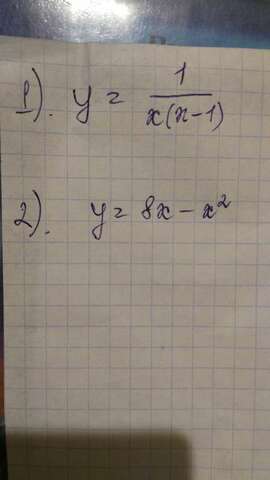 1). y = 1/x(x-1)
2). y = 8x - x²